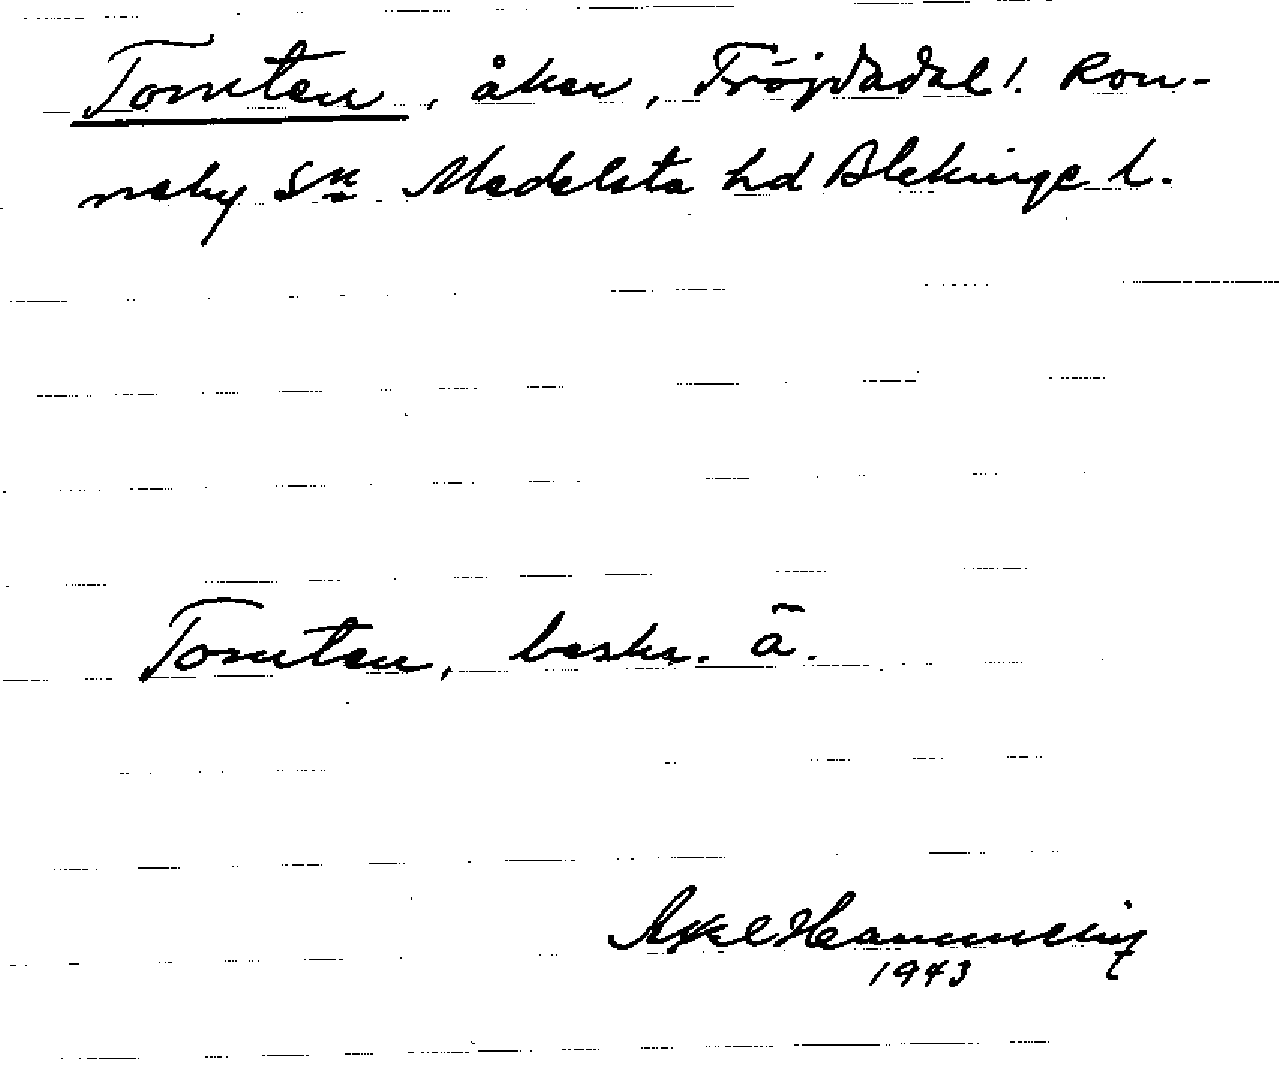 Tomten, åker, Fröjdadal! Ron-
neby Sn Medelsta hd Blekinge l.
Tomten, beskr. ä.
Axel
1943